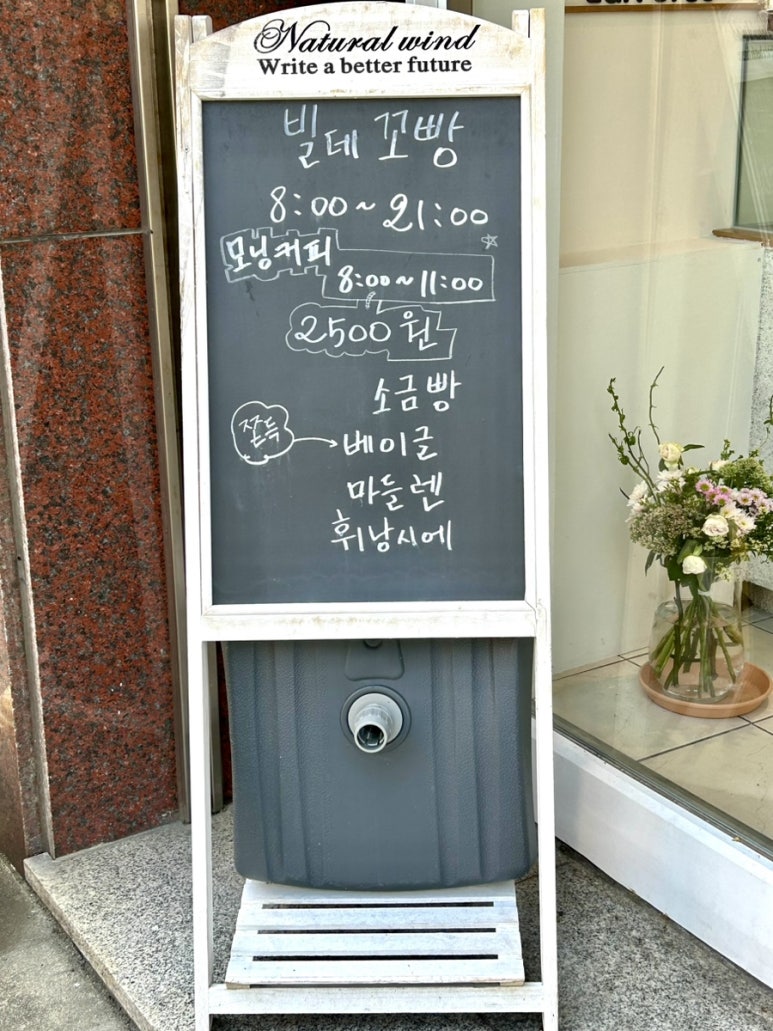 Natural wind
Write a better future
빌데 꼬빵
8:00~21:00
모닝커피
8:00~11:00
2500원
소금빵
쫀득
베이글
마들렌
휘낭시에